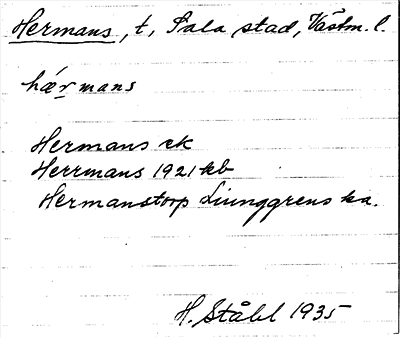 Hermans, t, Sala stad, Västm. l.
hǽr̥mans
Hermans ek
Herrmans 1921 kb
Hermanstorp Ljunggrens ka.
H. Ståhl 1935